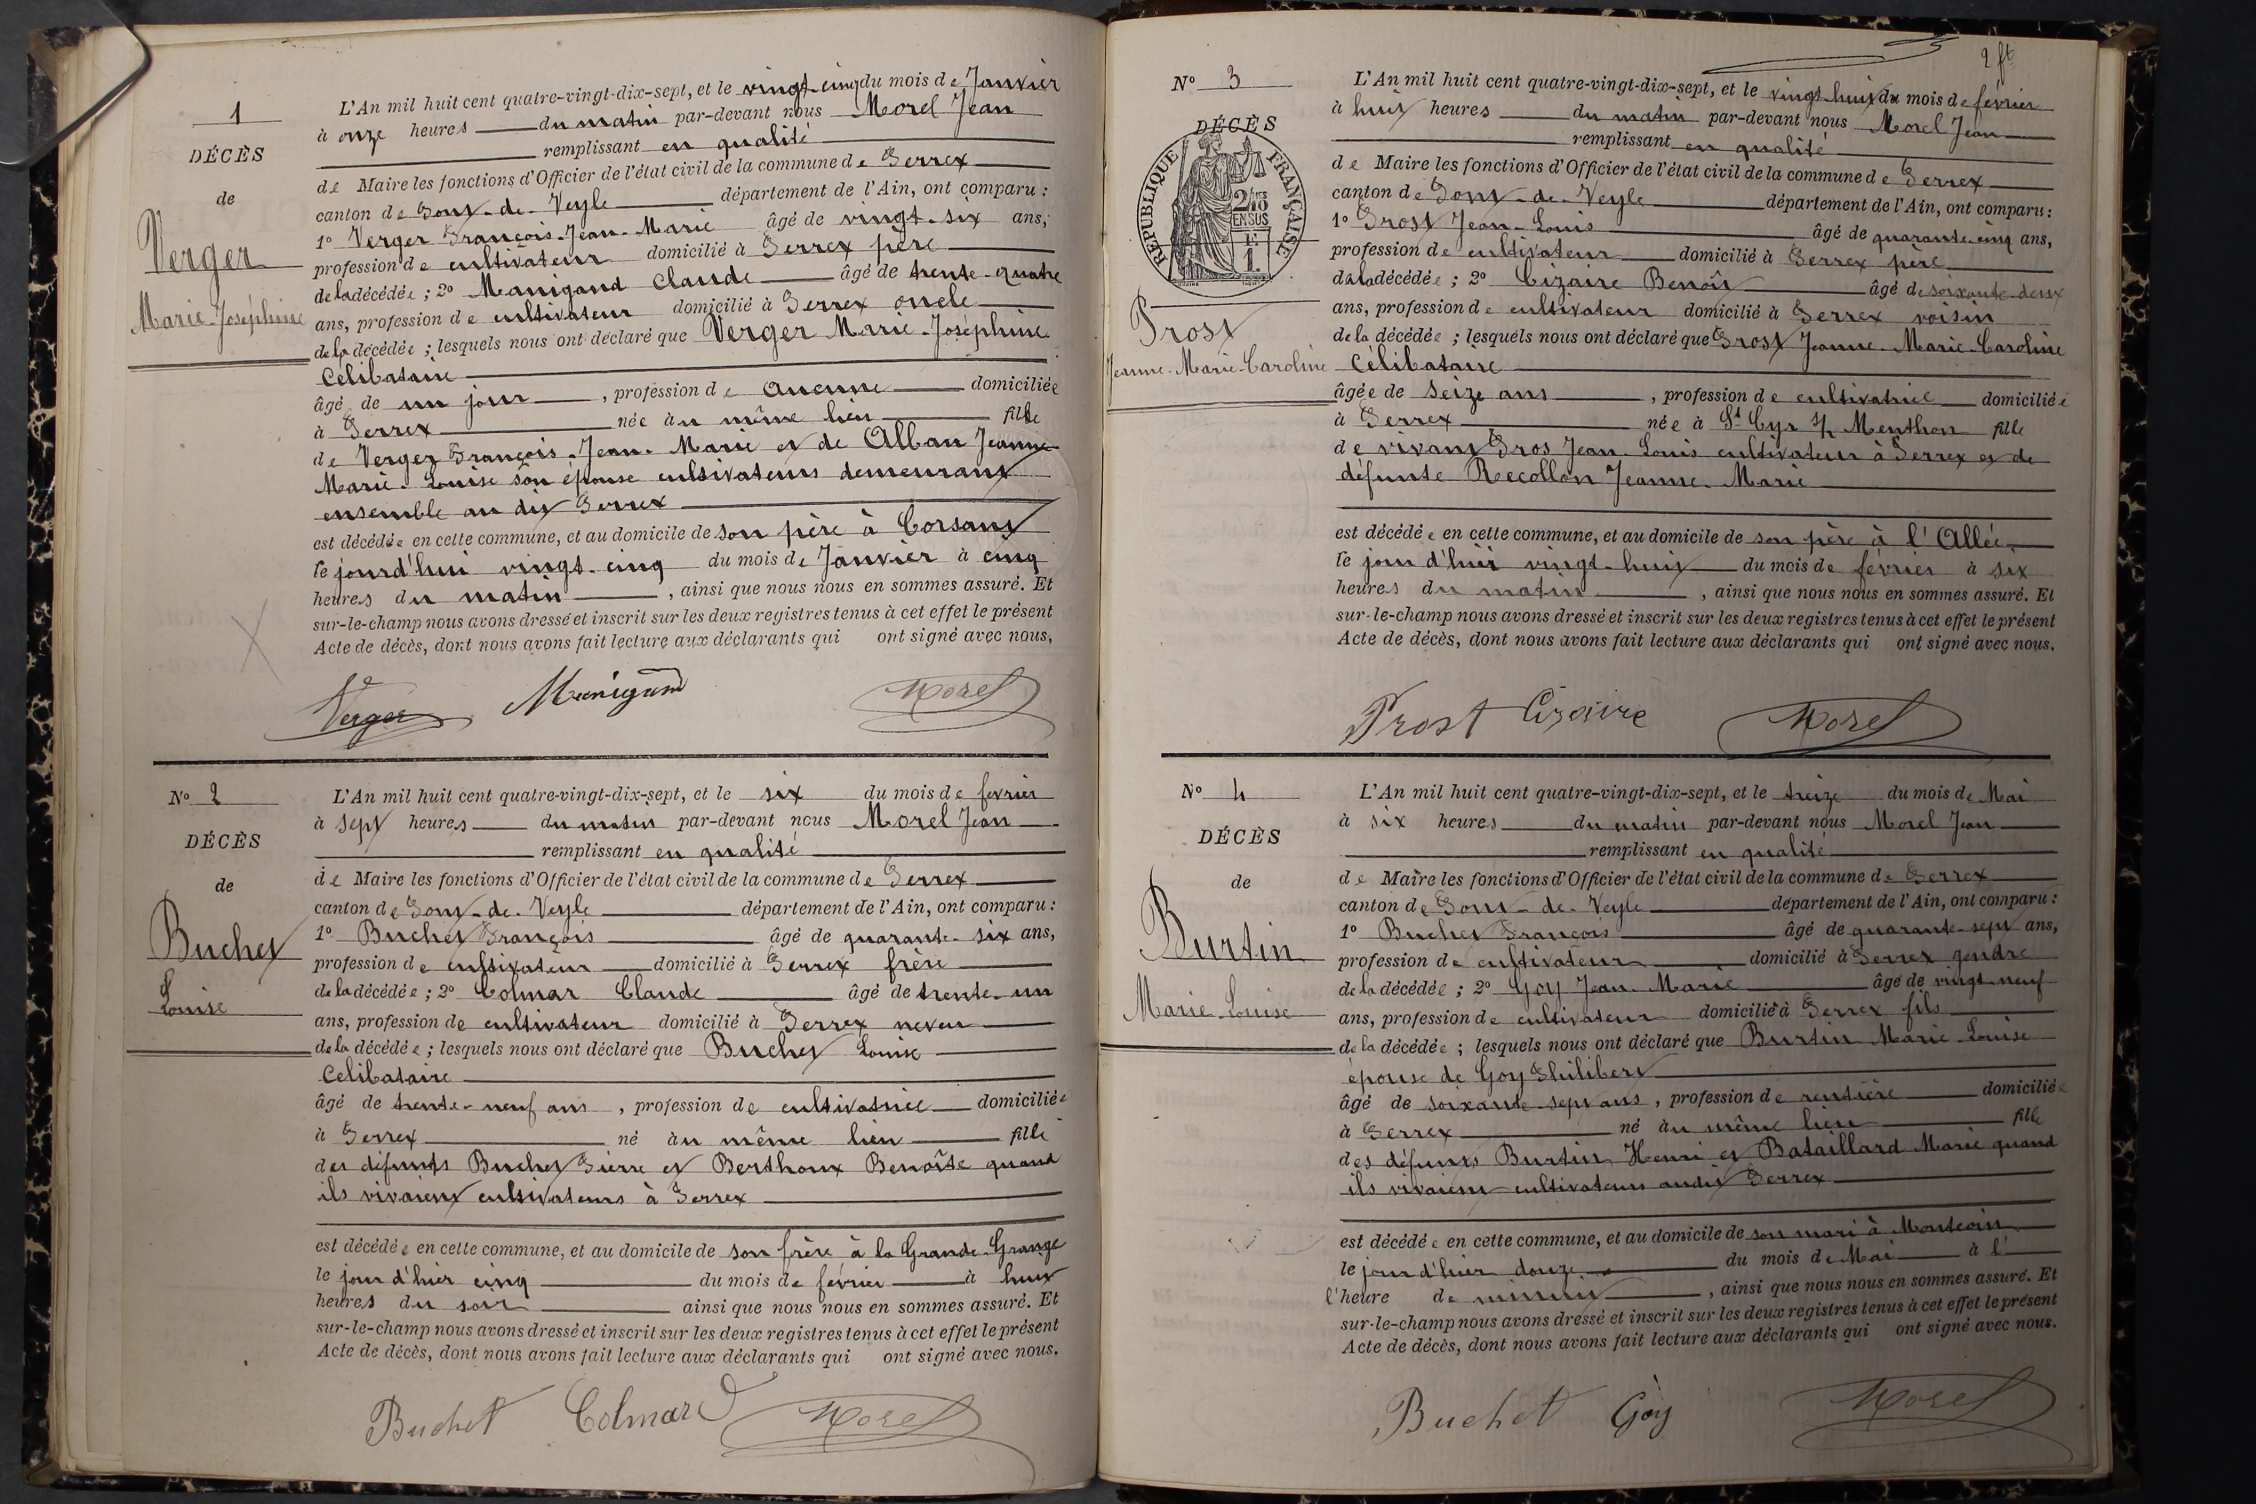 1
DÉCÈS
de
Verger
Marie-Joséphine
L'An mil huit cent quatre-vingt-dix-sept, et le vingt-cinq du mois de Janvier
à onze heures du matin par-devant nous Morel Jean
remplissant en qualité
de Maire les fonctions d'Officier de l'état civil de la commune de Perrex
canton de Pont-de-Veyle département de l'Ain, ont comparu :
1º Verger François-Jean-Marie âgé de vingt-six ans,
profession de cultivateur domicilié à Perrex père
de la décédée ; 2º Manigand Claude âgé de trente-quatre
ans, profession de cultivateur domicilié à Perrex oncle
de la décédée ; lesquels nous ont déclaré que Verger Marie-Joséphine
Célibataire
âgé de un jour, profession de aucune domiciliée
à Perrex née au même lieu fille
de Verger François-Jean-Marie et de Alban Jeanne
Marie-Louise son épouse cultivateurs demeurant
ensemble au dit Perrex
est décédée en cette commune, et au domicile de son père à Corsant
le jourd'hui vingt-cinq du mois de Janvier à cinq
heures du matin, ainsi que nous nous en sommes assuré. Et
sur-le-champ nous avons dressé et inscrit sur les deux registres tenus à cet effet le présent
Acte de décès, dont nous avons fait lecture aux déclarants qui ont signé avec nous.
Verger Manigand Morel
Nº 2
DÉCÈS
de
Buchet
Louise
L'An mil huit cent quatre-vingt-dix-sept, et le six du mois de fevrier
à sept heures du matin par-devant nous Morel Jean
remplissant en qualité
de Maire les fonctions d'Officier de l'état civil de la commune de Perrex
canton de Pont-de-Veyle département de l'Ain, ont comparu :
1º Buchet François âgé de quarante-six ans,
profession de cultivateur domicilié à Perrex frère
de la décédée ; 2º Colmar Claude âgé de trente-un
ans, profession de cultivateur domicilié à Perrex neveu
de la décédée ; lesquels nous ont déclaré que Buchet Louise
Celibataire
âgé de trente-neuf ans, profession de cultivatrice domiciliée
à Perrex né au même lieu fille
des défunts Buchet Pierre et Berthoux Benoîte quand
ils vivaient cultivateurs à Perrex
est décédée en cette commune, et au domicile de son frère à la Grande-Grange
le jour d'hier cinq du mois de février à huit
heures du soir ainsi que nous nous en sommes assuré. Et
sur-le-champ nous avons dressé et inscrit sur les deux registres tenus à cet effet le présent
Acte de décès, dont nous avons fait lecture aux déclarants qui ont signé avec nous.
Buchet Colmard Morel
2 ft
Nº 3
DÉCÈS
RÉPUBLIQUE FRANÇAISE
2/10
EN SUS
1 F.
Prost
Jeanne-Marie-Caroline
L'An mil huit cent quatre-vingt-dix-sept, et le vingt-huit du mois de février
à huit heures du matin par-devant nous Morel Jean
remplissant en qualité
de Maire les fonctions d'Officier de l'état civil de la commune de Perrex
canton de Pont-de-Veyle département de l'Ain, ont comparu :
1º Prost Jean-Louis âgé de quarante-cinq ans,
profession de cultivateur domicilié à Perrex père
de la décédée ; 2º Cizaire Benoît âgé de soixante-deux
ans, profession de cultivateur domicilié à Perrex voisin
de la décédée ; lesquels nous ont déclaré que Prost Jeanne-Marie-Caroline
Célibataire
âgée de seize ans, profession de cultivatrice domiciliée
à Perrex née à St Cyr s/ Menthon fille
de vivant Pros Jean-Louis cultivateur à Perrex et de
défunte Recollon Jeanne-Marie
est décédée en cette commune, et au domicile de son père à l'Allée
le jour d'hui vingt-huit du mois de février à six
heures du matin, ainsi que nous nous en sommes assuré. Et
sur-le-champ nous avons dressé et inscrit sur les deux registres tenus à cet effet le présent
Acte de décès, dont nous avons fait lecture aux déclarants qui ont signé avec nous.
Prost Cizaire Morel
Nº 4
DÉCÈS
de
Burtin
Marie-Louise
L'An mil huit cent quatre-vingt-dix-sept, et le treize du mois de Mai
à six heures du matin par-devant nous Morel Jean
remplissant en qualité
de Maire les fonctions d'Officier de l'état civil de la commune de Perrex
canton de Pont-de-Veyle département de l'Ain, ont comparu :
1º Buchet François âgé de quarante-sept ans,
profession de cultivateur domicilié à Perrex gendre
de la décédée ; 2º Goy Jean-Marie âgé de vingt-neuf
ans, profession de cultivateur domicilié à Perrex fils
de la décédée ; lesquels nous ont déclaré que Burtin Marie-Louise
épouse de Goy Philibert
âgé de soixante-sept ans, profession de rentière domiciliée
à Perrex né au même lieu fille
des défunts Burtin Henri et Bataillard Marie quand
ils vivaient cultivateurs audit Perrex
est décédée en cette commune, et au domicile de son mari à Montcoin
le jour d'hier douze du mois de Mai à l'
l'heure de minuit, ainsi que nous nous en sommes assuré. Et
sur-le-champ nous avons dressé et inscrit sur les deux registres tenus à cet effet le présent
Acte de décès, dont nous avons fait lecture aux déclarants qui ont signé avec nous.
Buchet Goy Morel